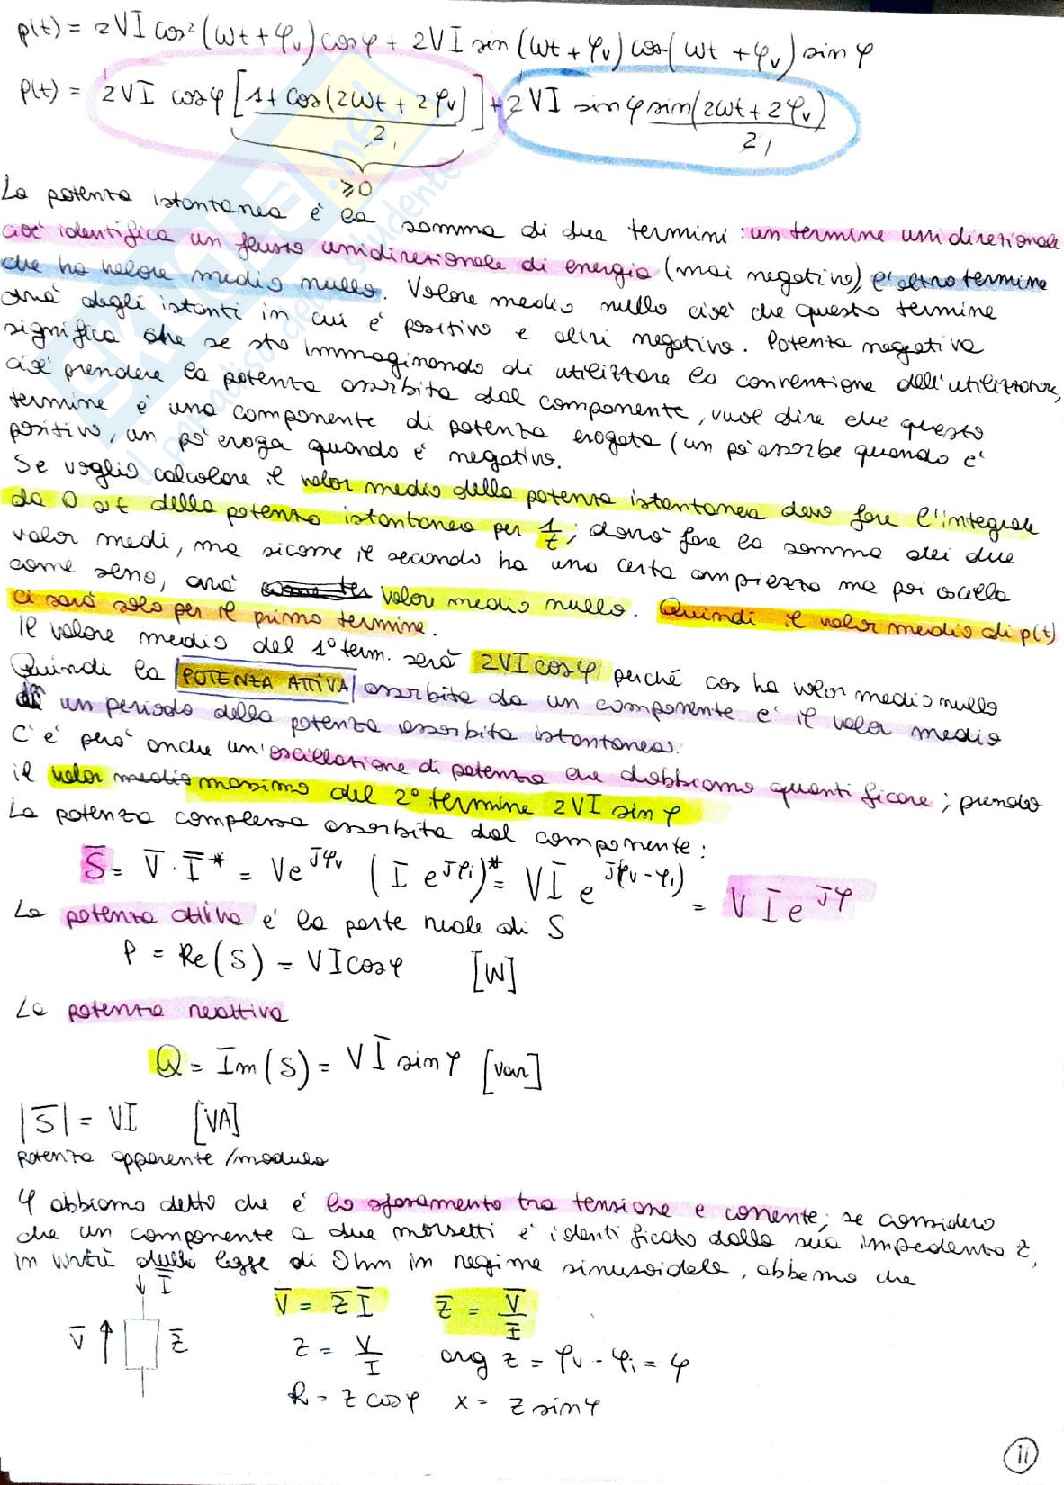 p(t) = 2VI cos²(ωt + φv) cosφ + 2VI sin(ωt + φv) cos(ωt + φv) sin φ
p(t) = 2VI cosφ [1 + cos(2ωt + 2φv)]/2 + 2VI sinφ sin(2ωt + 2φv)/2
≥0
La potenza istantanea è la somma di due termini: un termine unidirezionale
cioè identifica un flusso unidirezionale di energia (mai negativo) e l'altro termine
che ha valore medio nullo. Valore medio nullo cioè che questo termine
avrà degli istanti in cui è positivo e altri negativo. Potenza negativa
significa che se sto immaginando di utilizzare la convenzione dell'utilizzatore,
cioè prendere la potenza assorbita dal componente, vuol dire che questo
termine è una componente di potenza erogata (un po' assorbe quando è
positivo, un po' eroga quando è negativo.
Se voglio calcolare il valor medio della potenza istantanea devo fare l'integrale
da 0 a t della potenza istantanea per 1/t; dovrò fare la somma dei due
valor medi, ma sicome il secondo ha una certa ampiezza ma poi oscilla
come seno, avrà valore medio nullo. Quindi il valor medio di p(t)
ci sarà solo per il primo termine.
Il valore medio del 1° term. sarà 2VI cosφ perché cos ha valor medio nullo
Quindi la POTENZA ATTIVA assorbita da un componente è il valor medio
di un periodo della potenza assorbita istantanea.
C'è però anche un'oscillazione di potenza che dobbiamo quantificare; prendo
il valor medio massimo del 2° termine 2VI sin φ
La potenza complessa assorbita dal componente:
S̅ = V̅ · I̅* = Ve^Jφv (I e^Jφi)* = VI e^J(φv-φi) = V I e^Jφ
La potenza attiva è la parte reale di S
P = Re(S) = VI cosφ [W]
La potenza reattiva
Q = Im(S) = VI sinφ [var]
|S̅| = VI [VA]
potenza apparente/modulo
φ abbiamo detto che è lo sfasamento tra tensione e corrente; se considero
che un componente a due morsetti è identificato dalla sua impedenza z,
in virtù della legge di Ohm in regime sinusoidale, abbiamo che
I̅
V̅ Z̅
V̅ = Z̅ I̅ Z̅ = V̅/I̅
z = V/I arg z = φv - φi = φ
R = z cosφ x = z sinφ
11